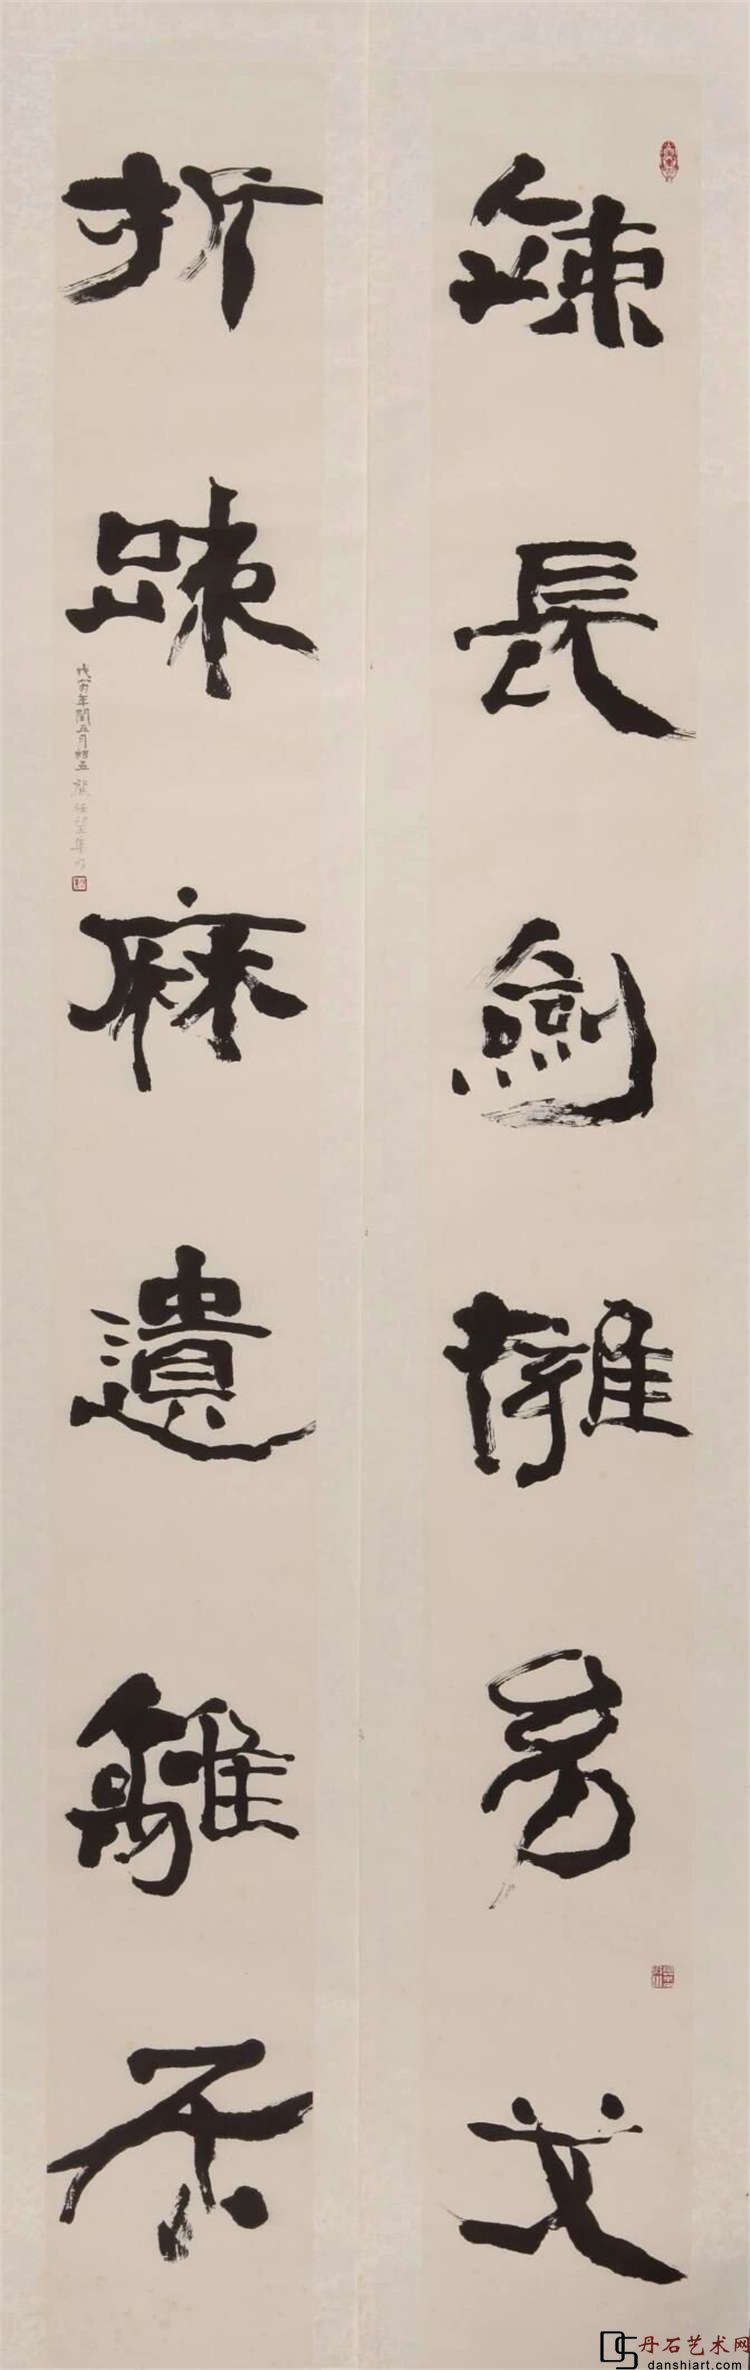 竦長劍擁幼艾
折疎麻遺離居
戊寅年閏五月初五
丹石艺术网
danshiart.com